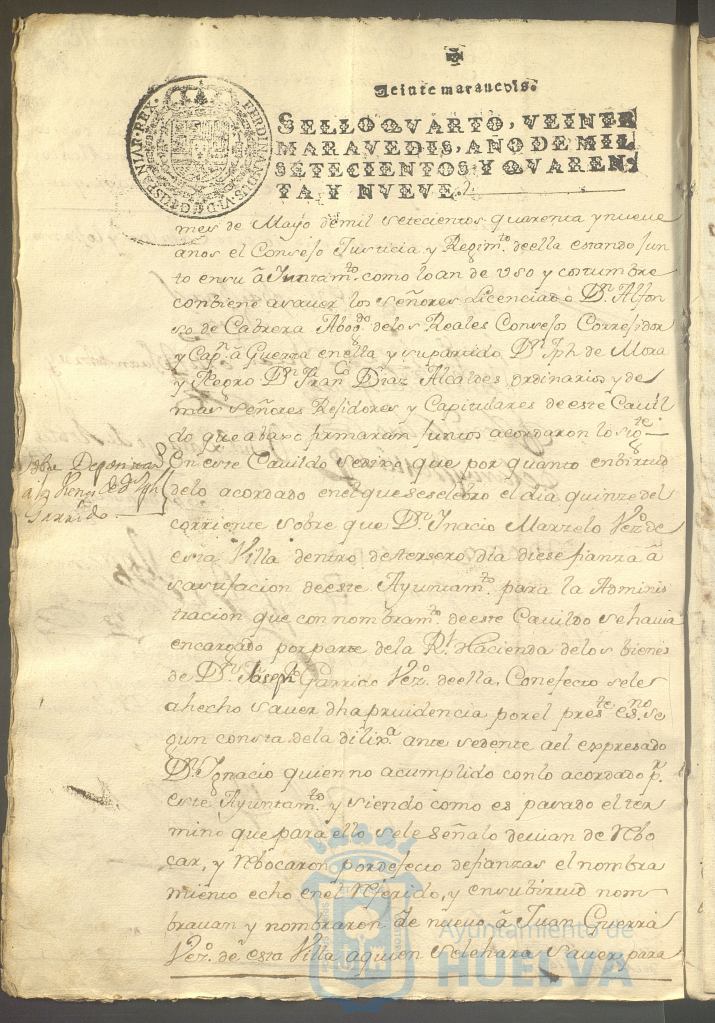 Veinte maravedis.
SELLO QVARTO, VEINTE
MARAVEDIS, AÑO DE MIL
SETECIENTOS Y QVAREN-
TA Y NVEVE.
FERDINANDUS VI D G HISPANIAR REX
mes de Mayo demil setecientos quarenta ynueue
anos el Consejo Justicia y Regim.to deella estando jun
to ensu aJuntam.to como loan de vso y costumbre
conbiene asauer los señores Licenciado D.n Alfon
so de Cabrera Abog.do delos Reales Consejos Corregidor
y Cap.n â Guerra enella y supartido D.n Jph. de Mora
y Negro D.n Fran.co Diaz Alcaldes ordinarios y de
mas señores Regidores y Capitulares deeste Cauil
do que abaxo firmaran juntos acordaron lo sig.te
En este Cauildo sedixo que por quanto enbirtud
delo acordado enelque secelebro el dia quinze del
corriente sobre que D.n Inacio Marzelo Vez.o de
esta Villa dentro detersero dia diese fianza â
satisfacion deeste Ayuntam.to para la Adminis
tracion que con nombram.to deeste Cauildo sehauia
encargado porparte dela R.l Hacienda delos bienes
de D.n Joseph Garrido Vez.o deella, Conefecto sele
ahecho sauer dha prouidencia porel pres.te es.no se
gun consta dela dilix.a ante sedente ael expresado
D.n Ignacio quien no acumplido conlo acordado p.r
este Ayuntam.to y siendo como es pasado el ter
mino que para ello sele señalo deuian de Rbo
car, y Rbocaron pordefecto defianzas el nombra
miento echo enel Rferido, y ensubirtud nom
brauan y nombraron de nueuo â Juan Guerra
Vez.o de esta Villa aquien selehara sauer para
sobre Deposit
Garrido
Ayuntamiento de
HUELVA